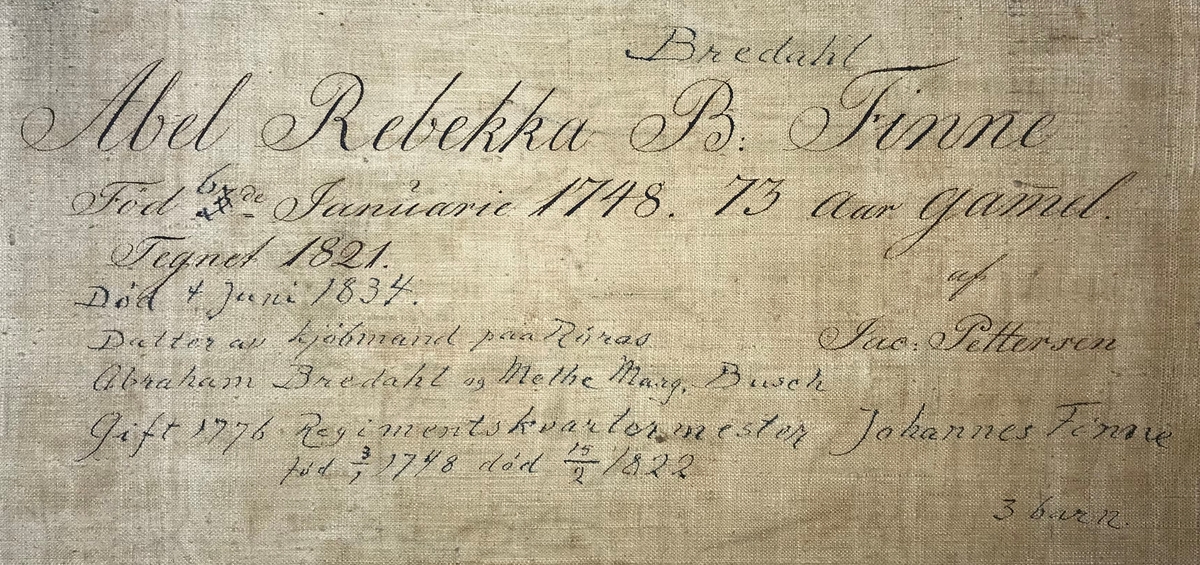 Bredahl
Abel Rebekka B: Finne
Född 6de Januarie 1748. 73 aar gam̄el.
Tegnet 1821.
af
Død 4 Juni 1834.
Datter av kjöbmand paa Röras
Jac: Pettersen
Abraham Bredahl og Methe Marg. Busch
Gift 1776 Regimentskvartermester Johannes Finne
född 3/1 1748 död 15/2 1822
3 barn.